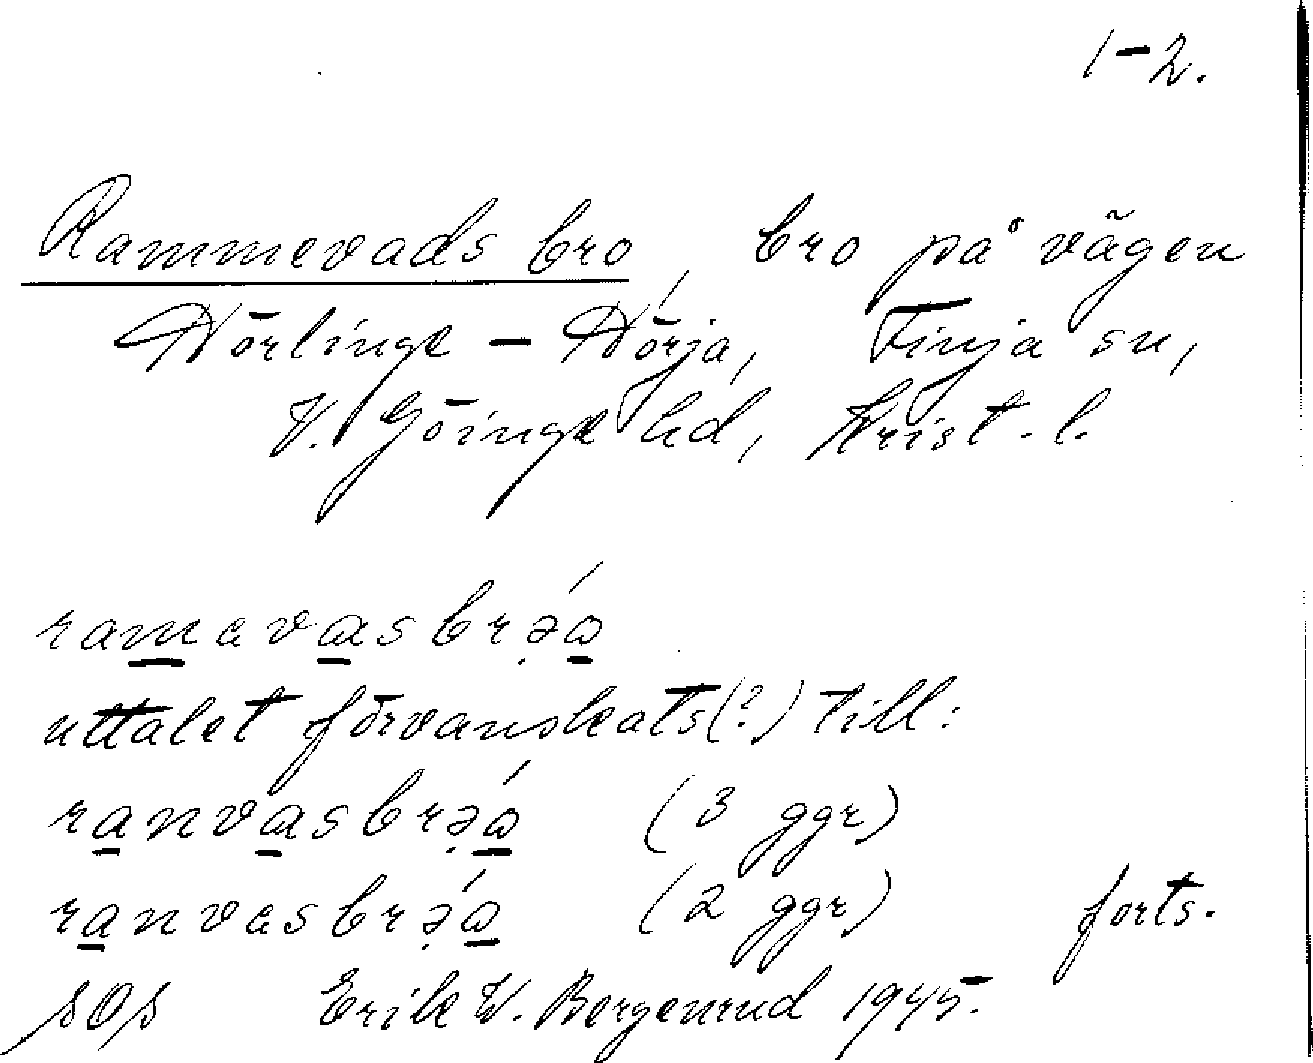 1-2.
Rammevads bro, bro på vägen
Nörlinge - Nörja, Finja sn,
V. Göinge hd, Krist. l.
ramevasbrəɷ́
uttalet förvanskats(?) till:
ranvasbrəɷ́ (3 ggr)
ranvasbrəɷ́ (2 ggr) forts.
sOs Erik W. Bergenrud 1945.